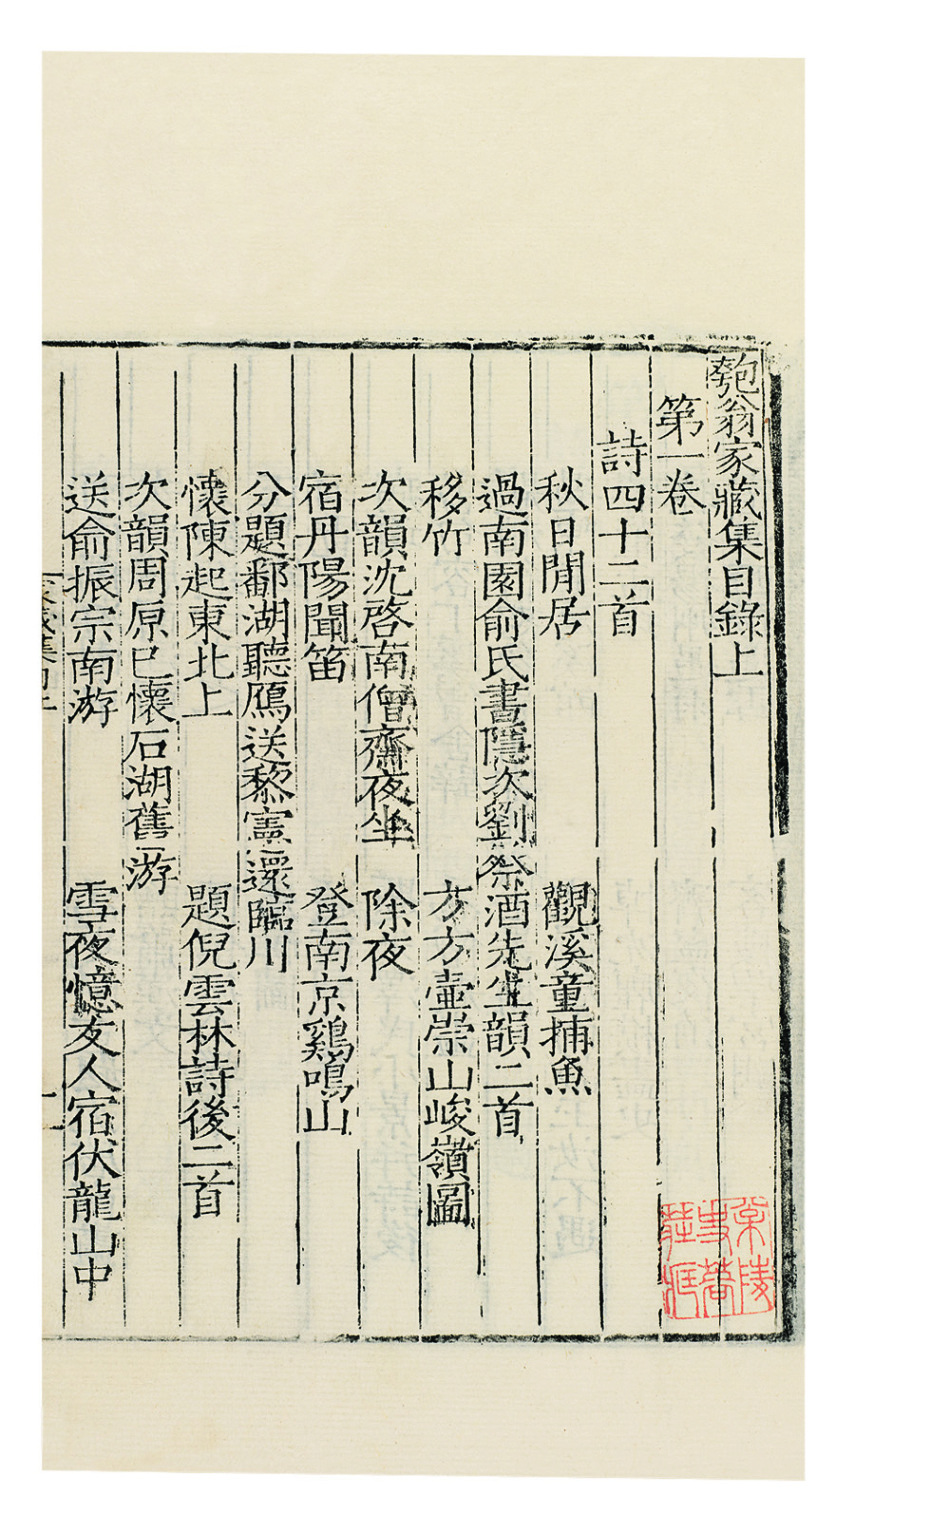 匏翁家藏集目錄上
第一卷
詩四十二首
秋日閒居 觀溪童捕魚
過南園俞氏書隱次劉祭酒先生韻二首
移竹 方方壺崇山峻嶺圖
次韻沈啓南僧齋夜坐 除夜
宿丹陽聞笛 登南京鷄鳴山
分題鄱湖聽鴈送黎憲還臨川
懷陳起東北上 題倪雲林詩後二首
次韻周原巳懷石湖舊游
送俞振宗南游 雪夜憶友人宿伏龍山中